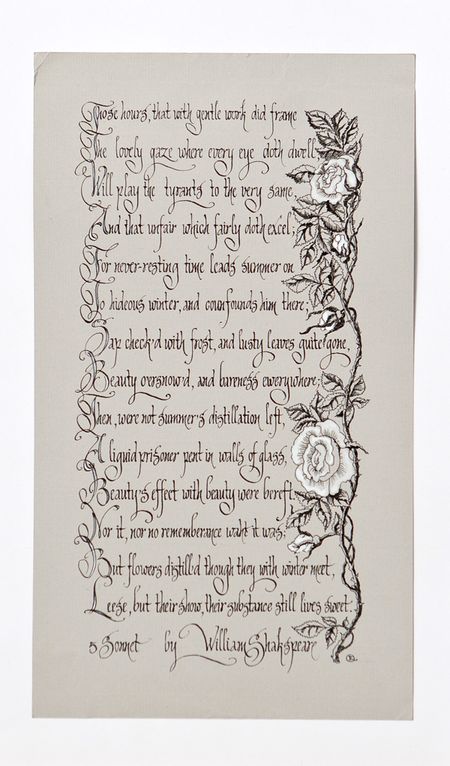 Those hours, that with gentle work did frame
The lovely gaze where every eye doth dwell,
Will play the tyrants to the very same
And that unfair which fairly doth excel;
For never-resting time leads summer on
To hideous winter, and counfounds him there;
Sap check'd with frost, and lusty leaves quite gone,
Beauty oersnow'd, and bareness everywhere;
Then, were not summer's distillation left,
A liquid prisoner pent in walls of glass,
Beauty's effect with beauty were bereft,
Nor it, nor no rememberance waht it was;
But flowers distill'd though they with winter meet,
Leese, but their show, their substance still lives sweet.
5 Sonnet by William Shakspeare